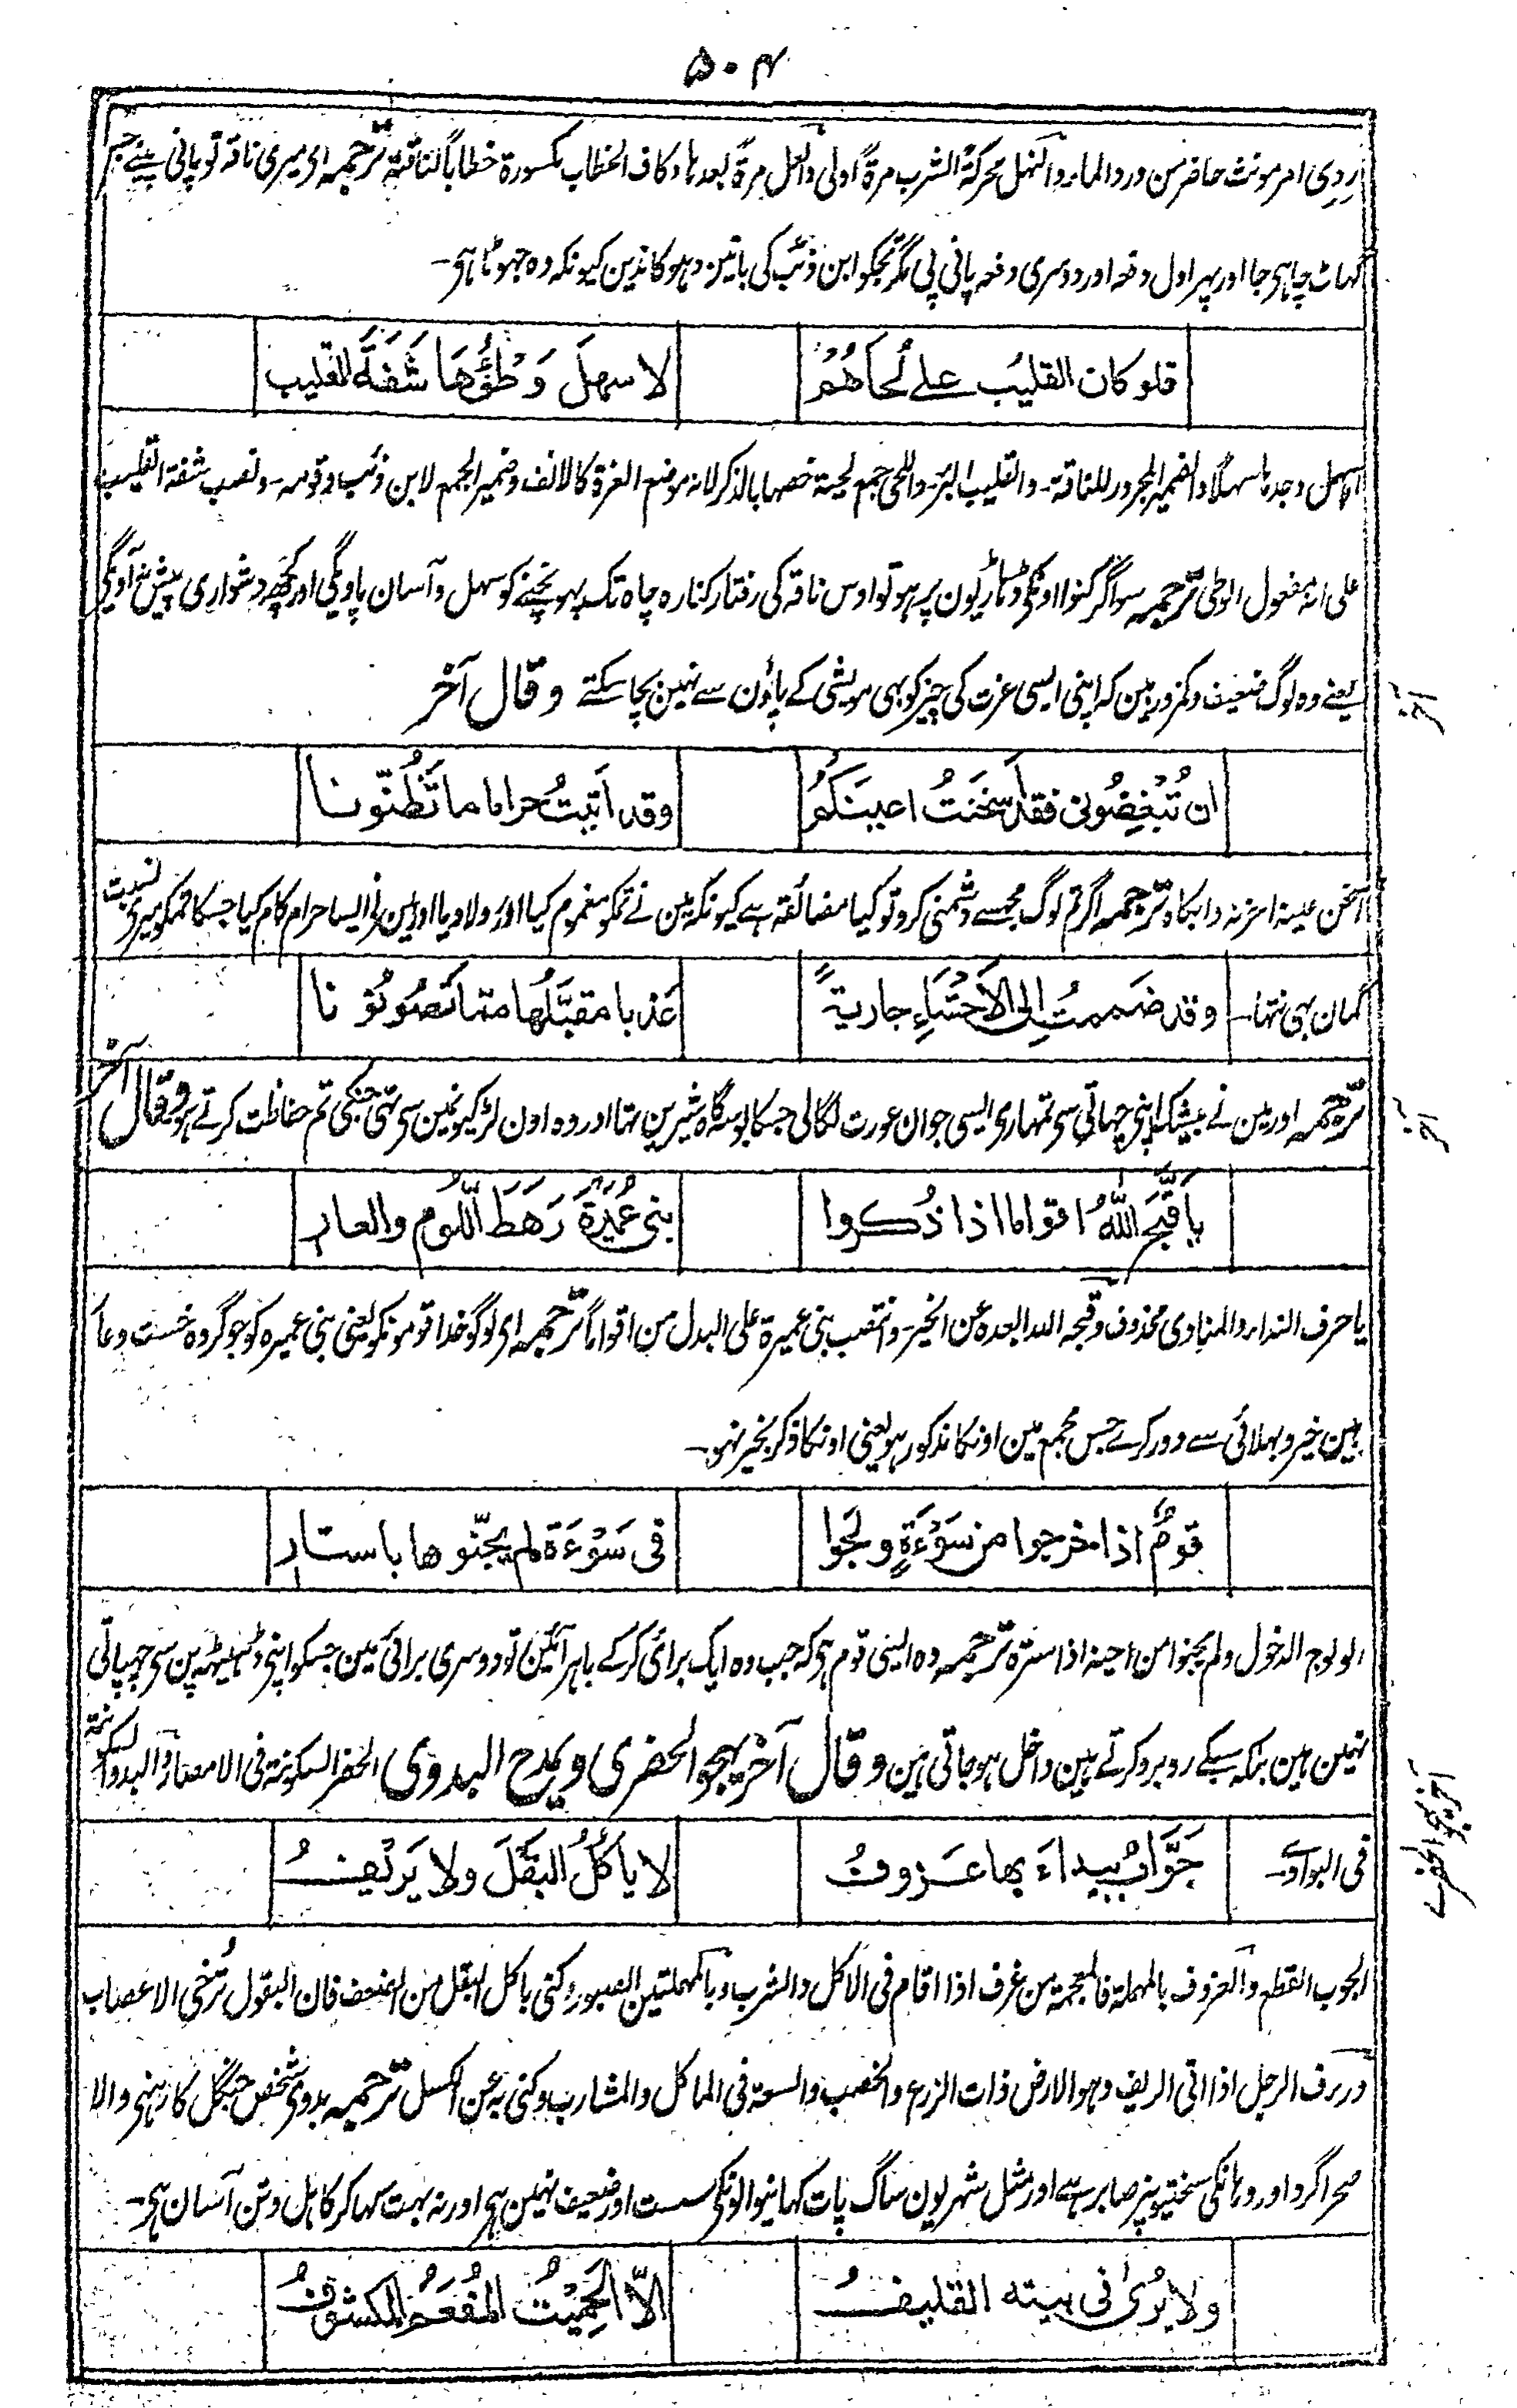 ۵۰۴
رِدِی امر مونث حاضر من ورد الماء والنہل محرکۃً الشرب مرۃً اولی والعل مرۃً بعدہا وکاف الخطاب مکسورۃ خطاباً للناقۃ ترجمہ ای میری ناقہ تو پانی پینے جس
گہاٹ چاہی جا اور پہر اول دفعہ اور دوسری دفعہ پانی پی مگر تجکو ابن ذئب کی باتین دہوکا ندین کیونکہ وہ جہوٹا ہی۔
فلو کان القلیبُ علےٰ لُحاھُمْ لاسہلَ وَطْؤُھَا شَفَۃَ القلیب
اسہل وجدہا سہلاً والضمیر المجرور للناقۃ۔ والقلیب البئر۔ واللحی جمع لحیۃ خصہا بالذکر لانہ موضع العزۃ کالانف وضمیر الجمع لابن ذئب وقومہ۔ ونصب شفۃ القلیب
علی انہ مفعول الوطی ترجمہ سو اگر کنوا اونکی ڈاڑیون پر ہو تو اوس ناقہ کی رفتار کنارہ چاہ تک پہونچنے کو سہل وآسان پاویگی اور کچھ دشواری پیش نہ آویگی
یعنے وہ لوگ ضعیف وکمزور ہین کہ اپنی ایسی عزت کی چیز کو بہی مویشی کے پاؤن سے نہین بچا سکتے وقال آخر
آخر
ان تُبْغِضُونی فقد اَسخَنتُ اعینَکُمْ وقد اَتَیتُ حراما ما تَظُنّونا
اسخن عینہ احزنہ وابکاہ ترجمہ اگر تم لوگ مجسے دشمنی کرو تو کیا مضائقہ ہے کیونکہ مین نے تمکو مغموم کیا اور رولا دیا اور مین نے ایسا حرام کام کیا جسکا تمکو میری نسبت
گمان بہی نتہا۔ وقد ضَممتُ اِلی الاَحْشَاءِ جاریۃً عَذبا مقبَّلُھا مما تَصُونُونا
ترجمہ اور مین نے بیشک اپنی چہاتی سی تمہاری ایسی جوان عورت لگا لی جسکا بوسہ گاہ شیرین تہا اور وہ اون لڑکیونمین سی تہی جنکی تم حفاظت کرتے ہو وقال آخر
آخر
یا قَبَّحَ اللّٰہُ اقواما اذا ذُکروا بنی عُمَیْرَۃَ رَھَطَ اللُّومِ والعار
یا حرف النداء والمنادی محذوف وقبحہ اللہ ابعدہ عن الخیر۔ وانتصب بنی عمیرۃ علی البدل من اقواماً ترجمہ ای لوگو خدا قومونکو یعنی بنی عمیرہ کو جو گروہ خست وعار
ہین خیر وبہلائی سے دور کرے جس مجمع مین اونکا مذکور ہو یعنی اونکا ذکر بخیر نہو۔
قومٌ اذا خرجوا من سَوْءَۃٍ ولَجُوا فی سَوْءَۃ لم یجنّوھا باستار
الولوج الدخول ولم یجنوا من اجنہ اذا سترہ ترجمہ وہ ایسی قوم ہی کہ جب وہ ایک برائی کرکے باہر آئین تو دوسری برائی مین جسکو اپنی ڈہیٹہ پن سی چہپاتی
نہین ہین بلکہ سبکے روبرو کرتے ہین داخل ہو جاتی ہین وقال آخر یہجو الحضری ویمدح البدوی الحضر السکونۃ فی الامصار والبدو السکونۃ
آخر یہجو الحضرے
فی البوادی۔ جَوَّابُ بیداءَ بھا عَزوفُ لا یاکُلُ البَقْلَ ولا یَرِیْفُ
الجوب القطع والعزوف بالمہملۃ فالمعجمۃ من غرف اذا اقام فی الاکل والشرب وبالمہملتین الصبور وکنی باکل البقل من الضعف فان البقول تُرخی الاعصاب
وریف الرجل اذا اتی الریف وہو الارض ذات الزرع والخصب والسعۃ فی الماکل والمشارب وکنی بہ عن الکسل ترجمہ بدوی شخص جنگل کا رہنی والا
صحرا گرد اور وہانکی سختیونپر صابر ہے اور مثل شہریون ساگ پات کہانیوالونکی سست اور ضعیف نہین ہی اور نہ بہت کہا کر کاہل وتن آسان ہی۔
ولا یُریٰ فی بیتہ القلیفُ الاّ الحَمِیْتُ المُفْعَمُ المکشوفُ